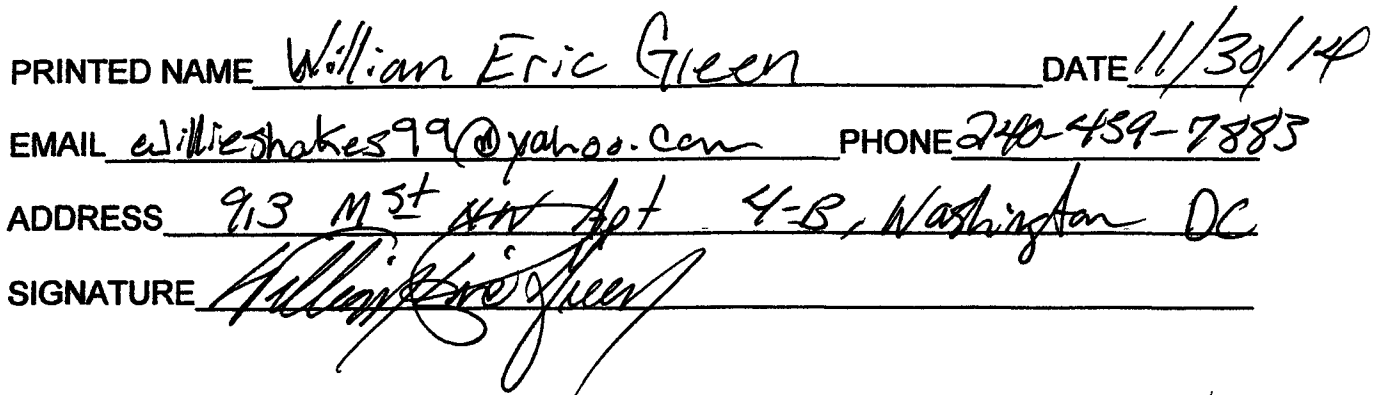 PRINTED NAME William Eric Green DATE 11/30/14
EMAIL willieshakes99@yahoo.com PHONE 240-459-7883
ADDRESS 913 M St NW Apt 4-B, Washington DC
SIGNATURE William Eric Green